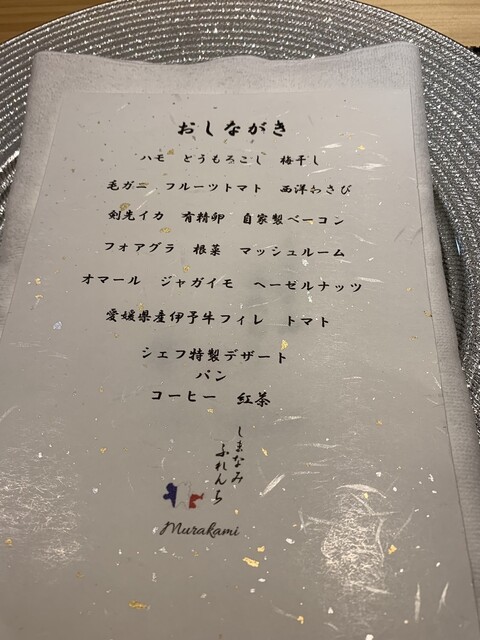 おしながき
ハモ とうもろこし 梅干し
毛ガニ フルーツトマト 西洋わさび
剣先イカ 有精卵 自家製ベーコン
フォアグラ 根菜 マッシュルーム
オマール ジャガイモ ヘーゼルナッツ
愛媛県産伊予牛フィレ トマト
シェフ特製デザート
パン
コーヒー 紅茶
しまなみ
ふれんち
Murakami